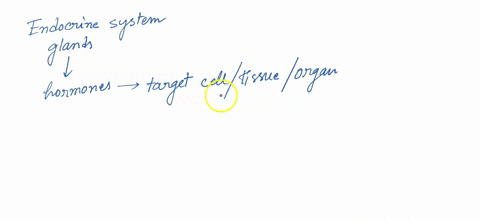 Endocrine system
glands
↓
hormones → target cell/tissue/organ